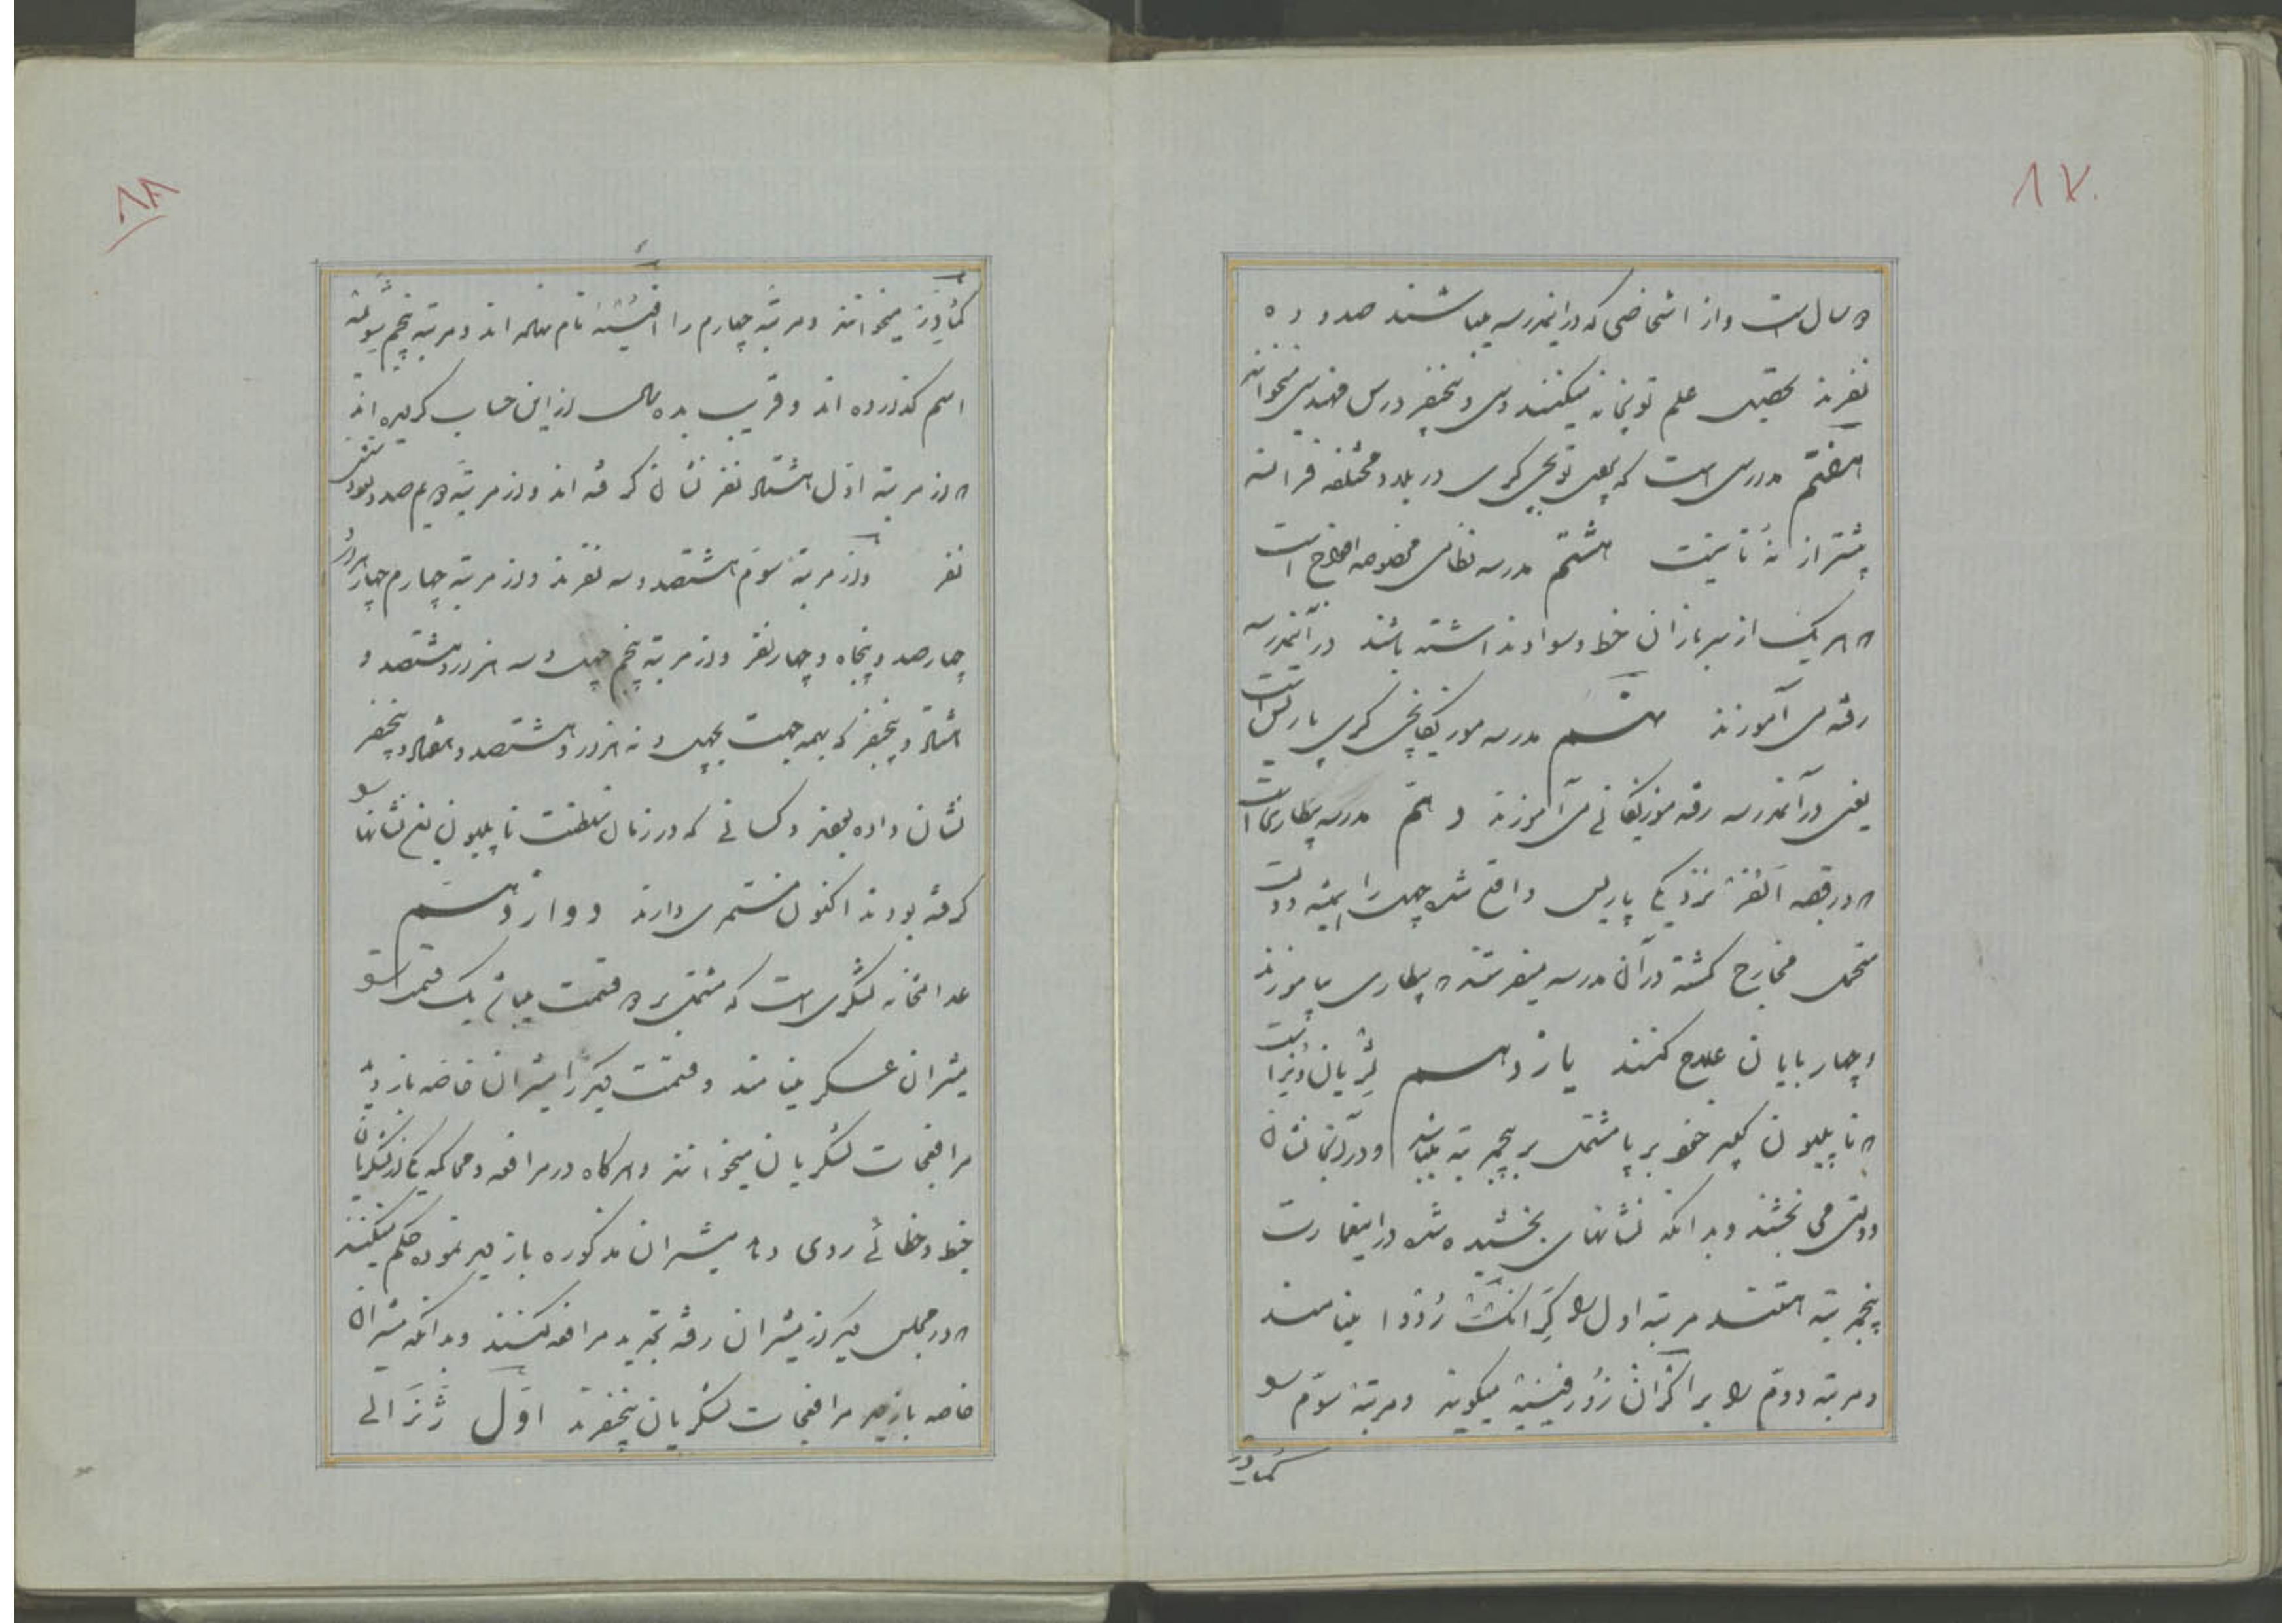 ۸۷
دو سال است و از اشخاصی که در این مدرسه میباشند صد و ده
نفرند تحصیل علم توپخانه میکنند و سی و پنجنفر درس مهندسی میخوانند
هفتم مدرسی است که یعنی توپچی گری در بلاد مختلفه فرانسه
بیشتر از نه تا نیست هشتم مدرسه نظامی مخصوصه افواج است
که هر یک از سربازان خط و سواد نداشته باشند در آنمدرسه
رفته می آموزند نهم مدرسه موزیکانچی گری پاریس است
یعنی در آنمدرسه رفته موزیکانی می آموزند دهم مدرسه بیطاری است
که در قصبه الفر نزدیکی پاریس واقع شده چهل را همیشه دولت
متحمل مخارج گشته در آن مدرسه میفرستند که بیطاری بیاموزند
و چهارپایان علاج کنند یازدهم لژیان دنرا است
که ناپلیون کبیر خود برپا مشتمل بر پنجمرتبه میباشد و در آنجا نشان
دولتی می بخشند و بدانکه نشانهای بخشیده شده در اینعمارت
پنجمرتبه هستند مرتبه اول را گرانگت رؤوا مینامند
و مرتبه دوم را گرانژ زورفیسیه میگویند و مرتبه سوم را
کماندر
۸۸
کماندر میخوانند و مرتبه چهارم را افیسیه نام نهاده اند و مرتبه پنجم شوالیه
اسم گذارده اند و قریب بده سال از این حساب کردیده اند
که از مرتبه اول هشتاد نفر نشان گرفته اند و از مرتبه دویم صد و نود و شش
نفر و از مرتبه سوم هشتصد و سه نفرند و از مرتبه چهارم چهار هزار و
چهارصد و پنجاه و چهار نفر و از مرتبه پنجم چهل و سه هزار و هشتصد و
هشتاد و پنجنفر که بهمه جهت چهل و نه هزار و هشتصد و هفتاد و پنجنفر
نشان داده بودند و کسانی که در زمان سلطنت ناپلیون این نشانها را
گرفته بودند اکنون مستمری دارند دوازدهم
عدالتخانه لشگری است که مشتمل بر دو قسمت میباشد یک قسمت را
مشیران عسکر مینامند و قسمت دیگر را مشیران خاصه بازدید
مرافعجات لشگریان میخوانند و هرگاه در مرافعه و محاکمه یکی از لشگریان
خبط و خطائی روی دهد مشیران مذکوره بازدید نموده حکم میکنند
که در مجلس دیگر از مشیران رفته تجدید مرافعه کنند و بدانکه مشیران
خاصه بازدید مرافعجات لشگریان پنجنفرند اول ژنرالی